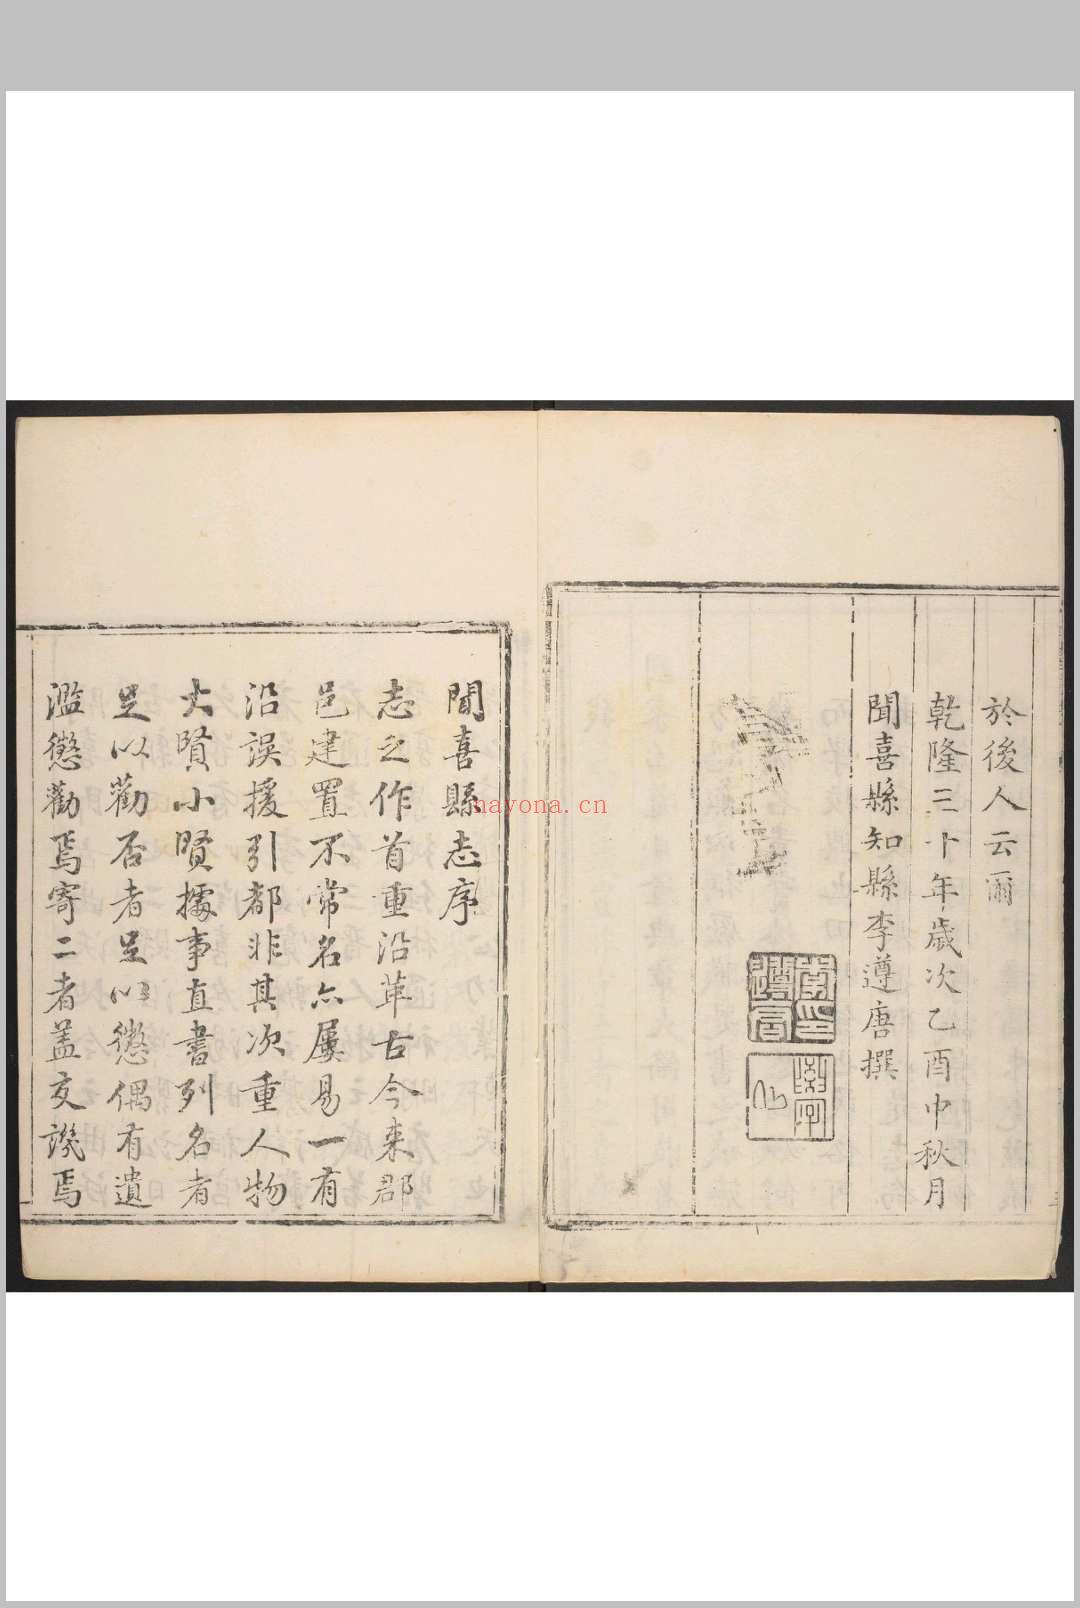 於後人云爾
乾隆三十年歲次乙酉中秋月
聞喜縣知縣李遵唐撰
聞喜縣志序
志之作首重沿革古今来郡
邑建置不常名亦屢易一有
沿誤援引都非其次重人物
大賢小賢據事直書列名者
足以勸否者足以懲偶有遺
濫懲勸焉寄二者盖交譏焉
nayona.cn